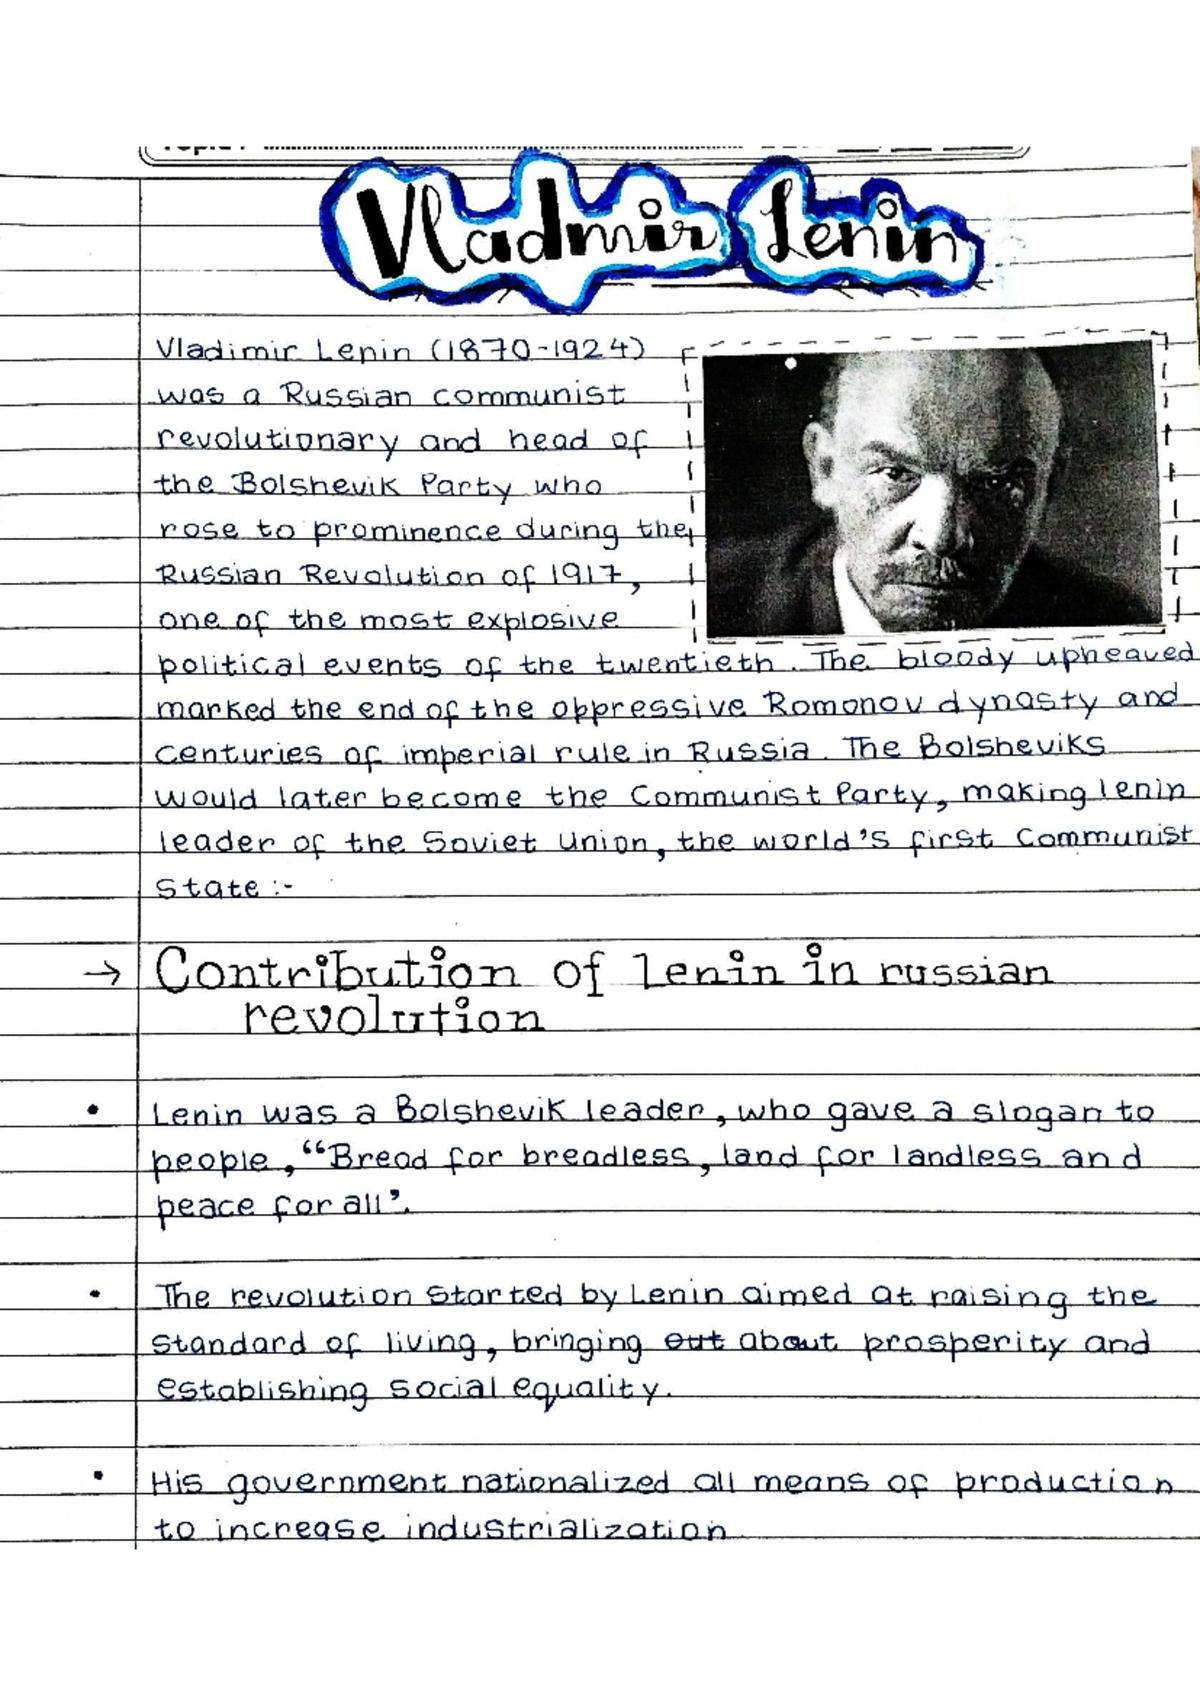 Topic :
Vladmir Lenin
Vladimir Lenin (1870-1924)
was a Russian communist
revolutionary and head of
the Bolshevik Party who
rose to prominence during the
Russian Revolution of 1917,
one of the most explosive
political events of the twentieth. The bloody upheaved
marked the end of the oppressive Romonov dynasty and
centuries of imperial rule in Russia. The Bolsheviks
would later become the Communist Party, making lenin
leader of the Soviet Union, the world's first Communist
State :-
→ Contribution of lenin in russian
revolution
• Lenin was a Bolshevik leader, who gave a slogan to
people, “Bread for breadless, land for landless and
peace for all’.
• The revolution started by Lenin aimed at raising the
standard of living, bringing out about prosperity and
establishing social equality.
• His government nationalized all means of production
to increase industrialization